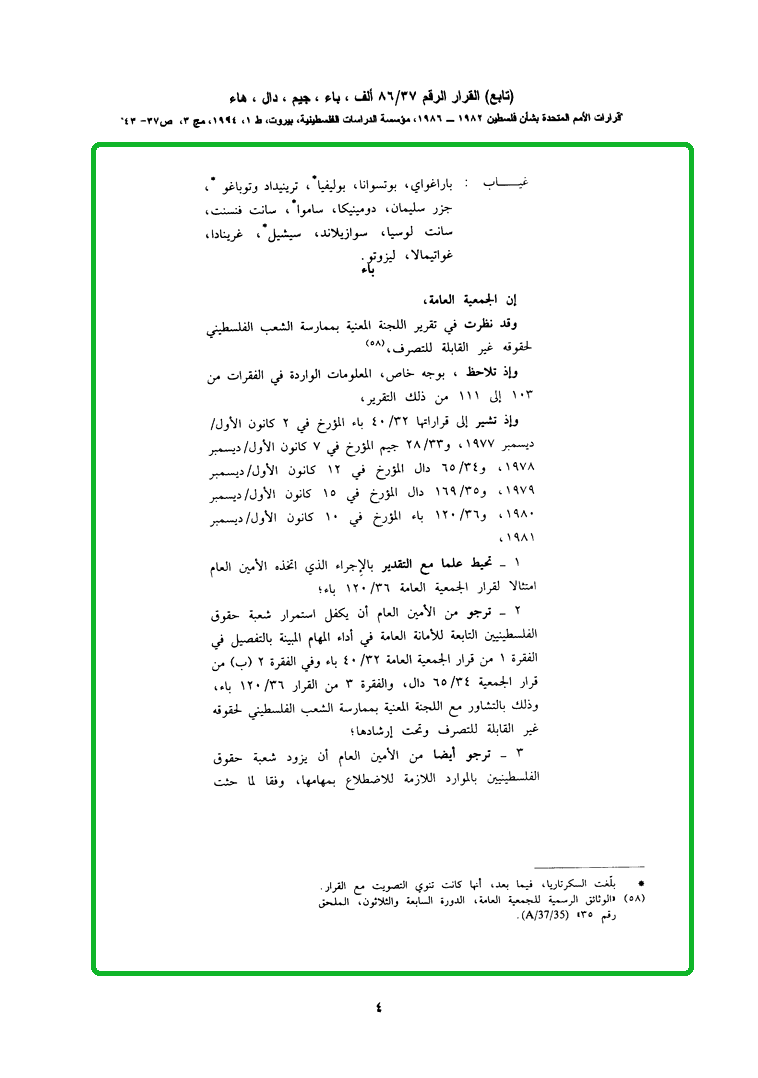 (تابع) القرار الرقم ٨٦/٣٧ ألف ، باء ، جيم ، دال ، هاء
"قرارات الأمم المتحدة بشأن فلسطين ١٩٨٢ ــ ١٩٨٦، مؤسسة الدراسات الفلسطينية، بيروت، ط ١، ١٩٩٤، مج ٣، ص٣٧- ٤٣"
غيــــاب : باراغواي، بوتسوانا، بوليفيا*، ترينيداد وتوباغو *،
جزر سليمان، دومينيكا، ساموا*، سانت فنسنت،
سانت لوسيا، سوازيلاند، سيشيل*، غرينادا،
غواتيمالا، ليزوتو.
باء
إن الجمعية العامة،
وقد نظرت في تقرير اللجنة المعنية بممارسة الشعب الفلسطيني
لحقوقه غير القابلة للتصرف،(٥٨)
وإذ تلاحظ ، بوجه خاص، المعلومات الواردة في الفقرات من
١٠٣ إلى ١١١ من ذلك التقرير،
وإذ تشير إلى قراراتها ٤٠/٣٢ باء المؤرخ في ٢ كانون الأول/
ديسمبر ١٩٧٧، و٢٨/٣٣ جيم المؤرخ في ٧ كانون الأول/ديسمبر
١٩٧٨، و٦٥/٣٤ دال المؤرخ في ١٢ كانون الأول/ديسمبر
١٩٧٩، و١٦٩/٣٥ دال المؤرخ في ١٥ كانون الأول/ديسمبر
١٩٨٠، و١٢٠/٣٦ باء المؤرخ في ١٠ كانون الأول/ديسمبر
١٩٨١،
١ ــ تحيط علما مع التقدير بالإجراء الذي اتخذه الأمين العام
امتثالا لقرار الجمعية العامة ١٢٠/٣٦ باء؛
٢ ــ ترجو من الأمين العام أن يكفل استمرار شعبة حقوق
الفلسطينيين التابعة للأمانة العامة في أداء المهام المبينة بالتفصيل في
الفقرة ١ من قرار الجمعية العامة ٤٠/٣٢ باء وفي الفقرة ٢ (ب) من
قرار الجمعية ٦٥/٣٤ دال، والفقرة ٣ من القرار ١٢٠/٣٦ باء،
وذلك بالتشاور مع اللجنة المعنية بممارسة الشعب الفلسطيني لحقوقه
غير القابلة للتصرف وتحت إرشادها؛
٣ ــ ترجو أيضا من الأمين العام أن يزود شعبة حقوق
الفلسطينيين بالموارد اللازمة للاضطلاع بمهامها، وفقا لما حثت
* بلّغت السكرتاريا، فيما بعد، أنها كانت تنوي التصويت مع القرار.
(٥٨) «الوثائق الرسمية للجمعية العامة، الدورة السابعة والثلاثون، الملحق
رقم ٣٥» (A/37/35).
٤